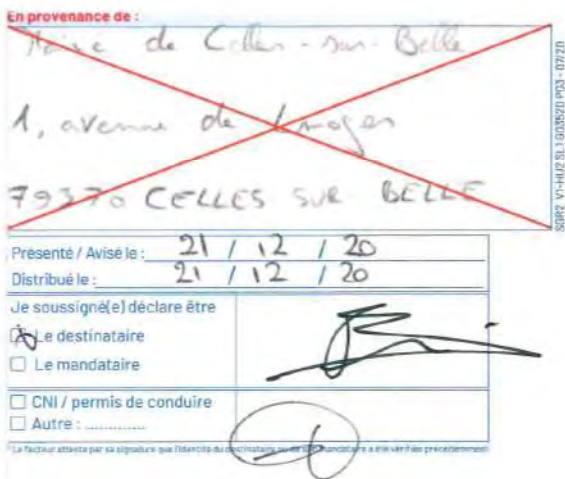 En provenance de :
Mairie de Celles-sur-Belle
1, avenue de Limoges
79370 CELLES SUR BELLE
SGR2 V1-HU2 SL1 G03520 P03 - 07/20
Présenté / Avisé le : 21 / 12 / 20
Distribué le : 21 / 12 / 20
Je soussigné(e) déclare être
Le destinataire
Le mandataire
CNI / permis de conduire
Autre : ..............
Le facteur atteste par sa signature que l'identité du destinataire ou de son mandataire a été vérifiée précédemment